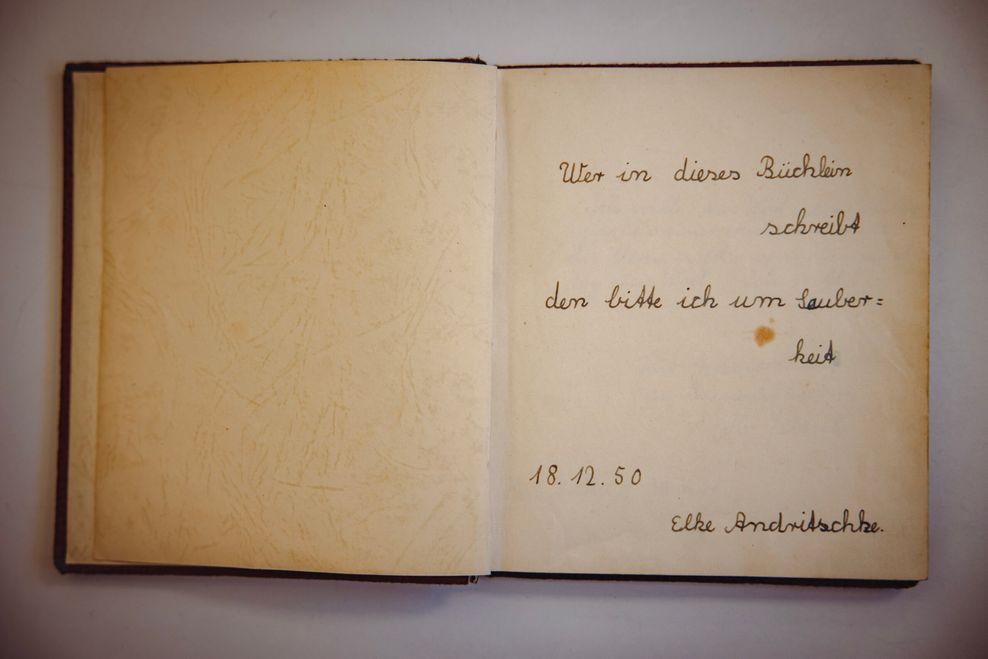 Wer in dieses Büchlein
schreibt
den bitte ich um Sauber=
keit
18.12.50
Elke Andritschke.